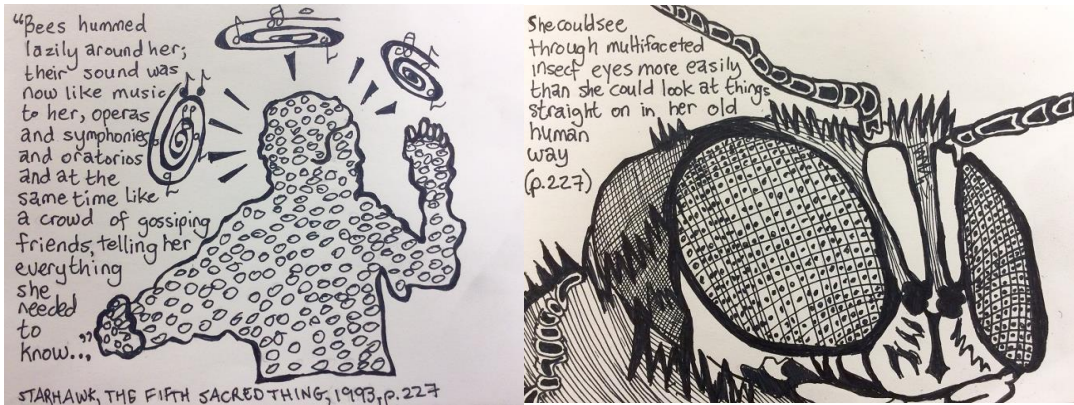 “Bees hummed
lazily around her;
their sound was
now like music
to her, operas
and symphonies
and oratorios
and at the
same time like
a crowd of gossiping
friends, telling her
everything
she
needed
to
know...”
STARHAWK, THE FIFTH SACRED THING, 1993, p.227
She could see
through multifaceted
insect eyes more easily
than she could look at things
straight on in her old
human
way
(p.227)